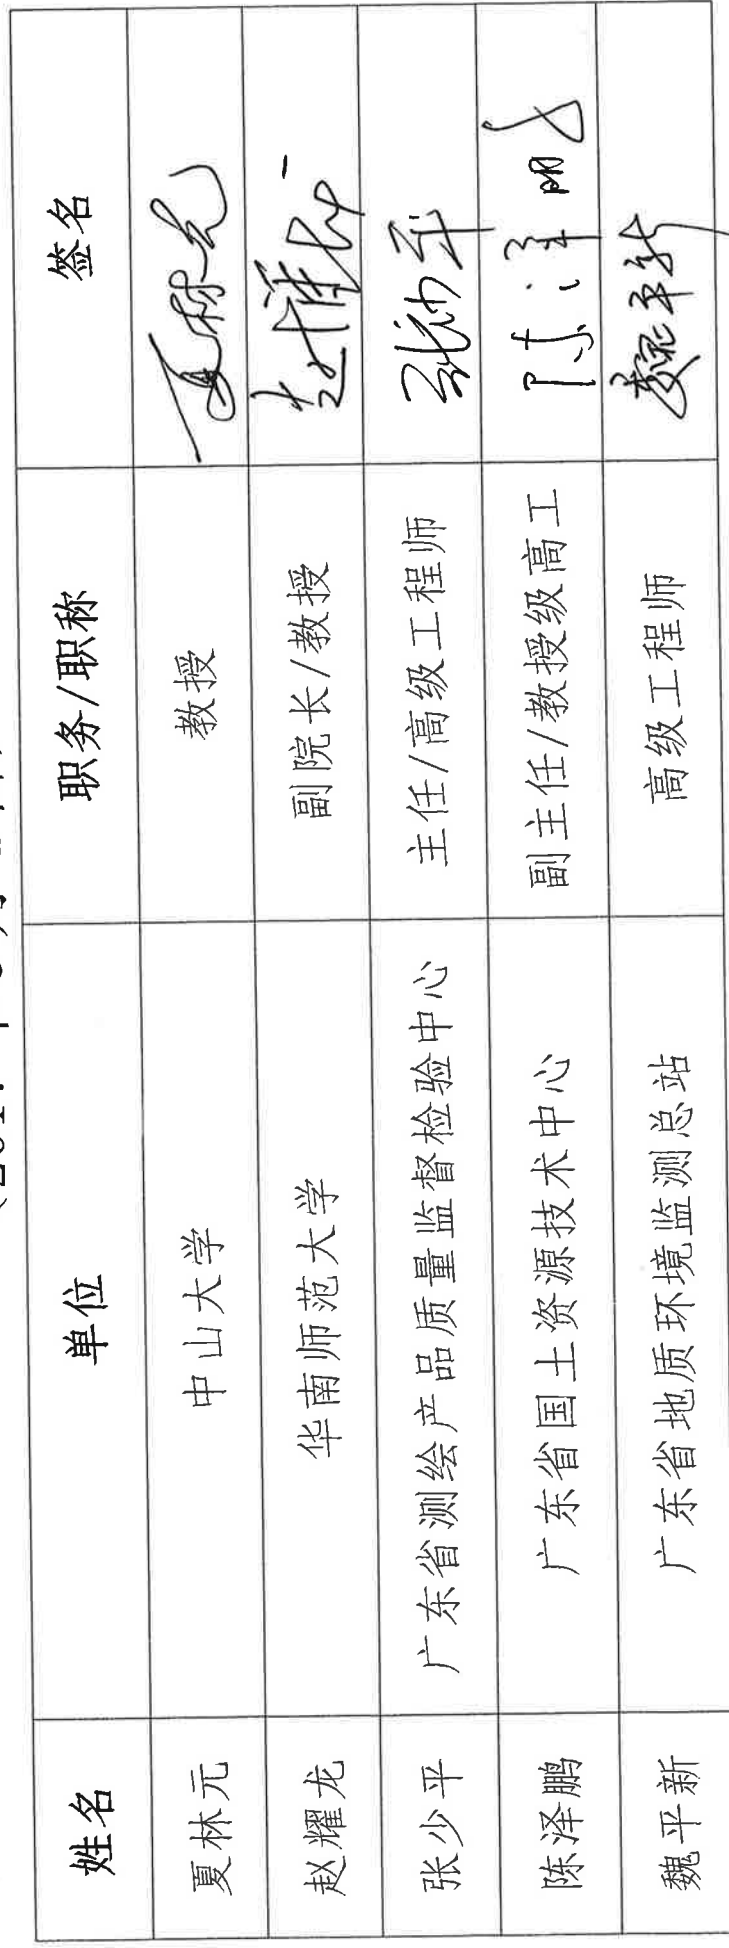 姓名 单位 职务/职称 签名
夏林元 中山大学 教授 夏林元
赵耀龙 华南师范大学 副院长/教授 赵耀龙
张少平 广东省测绘产品质量监督检验中心 主任/高级工程师 张少平
陈泽鹏 广东省国土资源技术中心 副主任/教授级高工 陈泽鹏
魏平新 广东省地质环境监测总站 高级工程师 魏平新